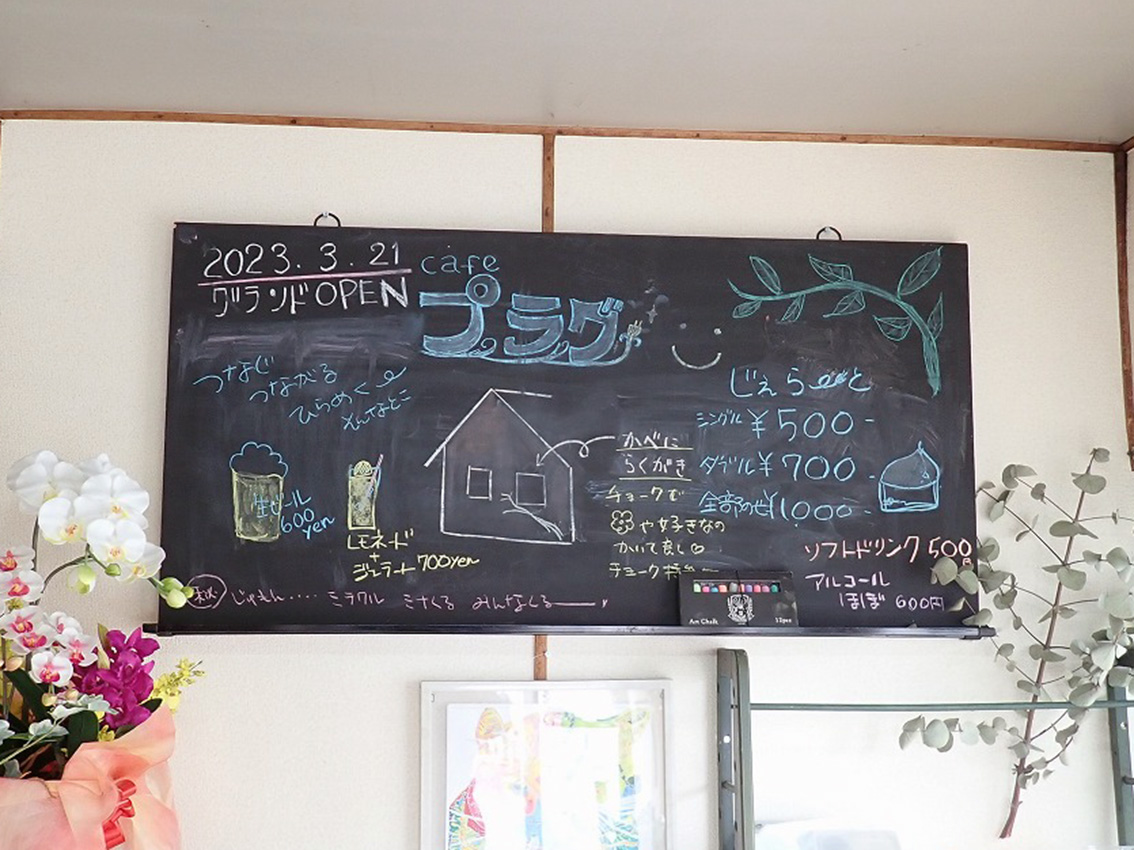 2023.3.21
グランドOPEN
cafe
プラグ
つなぐ
つながる
ひらめく
そんなとこ
生ビール
600
yen
レモネード
+
ジェラート700yen
かべに
らくがき
チョークで
や好きなの
かいて良し
チョーク
じぇらーと
シングル ¥500-
ダブル ¥700-
全部のせ¥1,000-
ソフトドリンク 500円
アルコール
ほぼ 600円
㊙ じゅもん.... ミラクル ミナくる みんなくるー
Art Chalk 12pcs